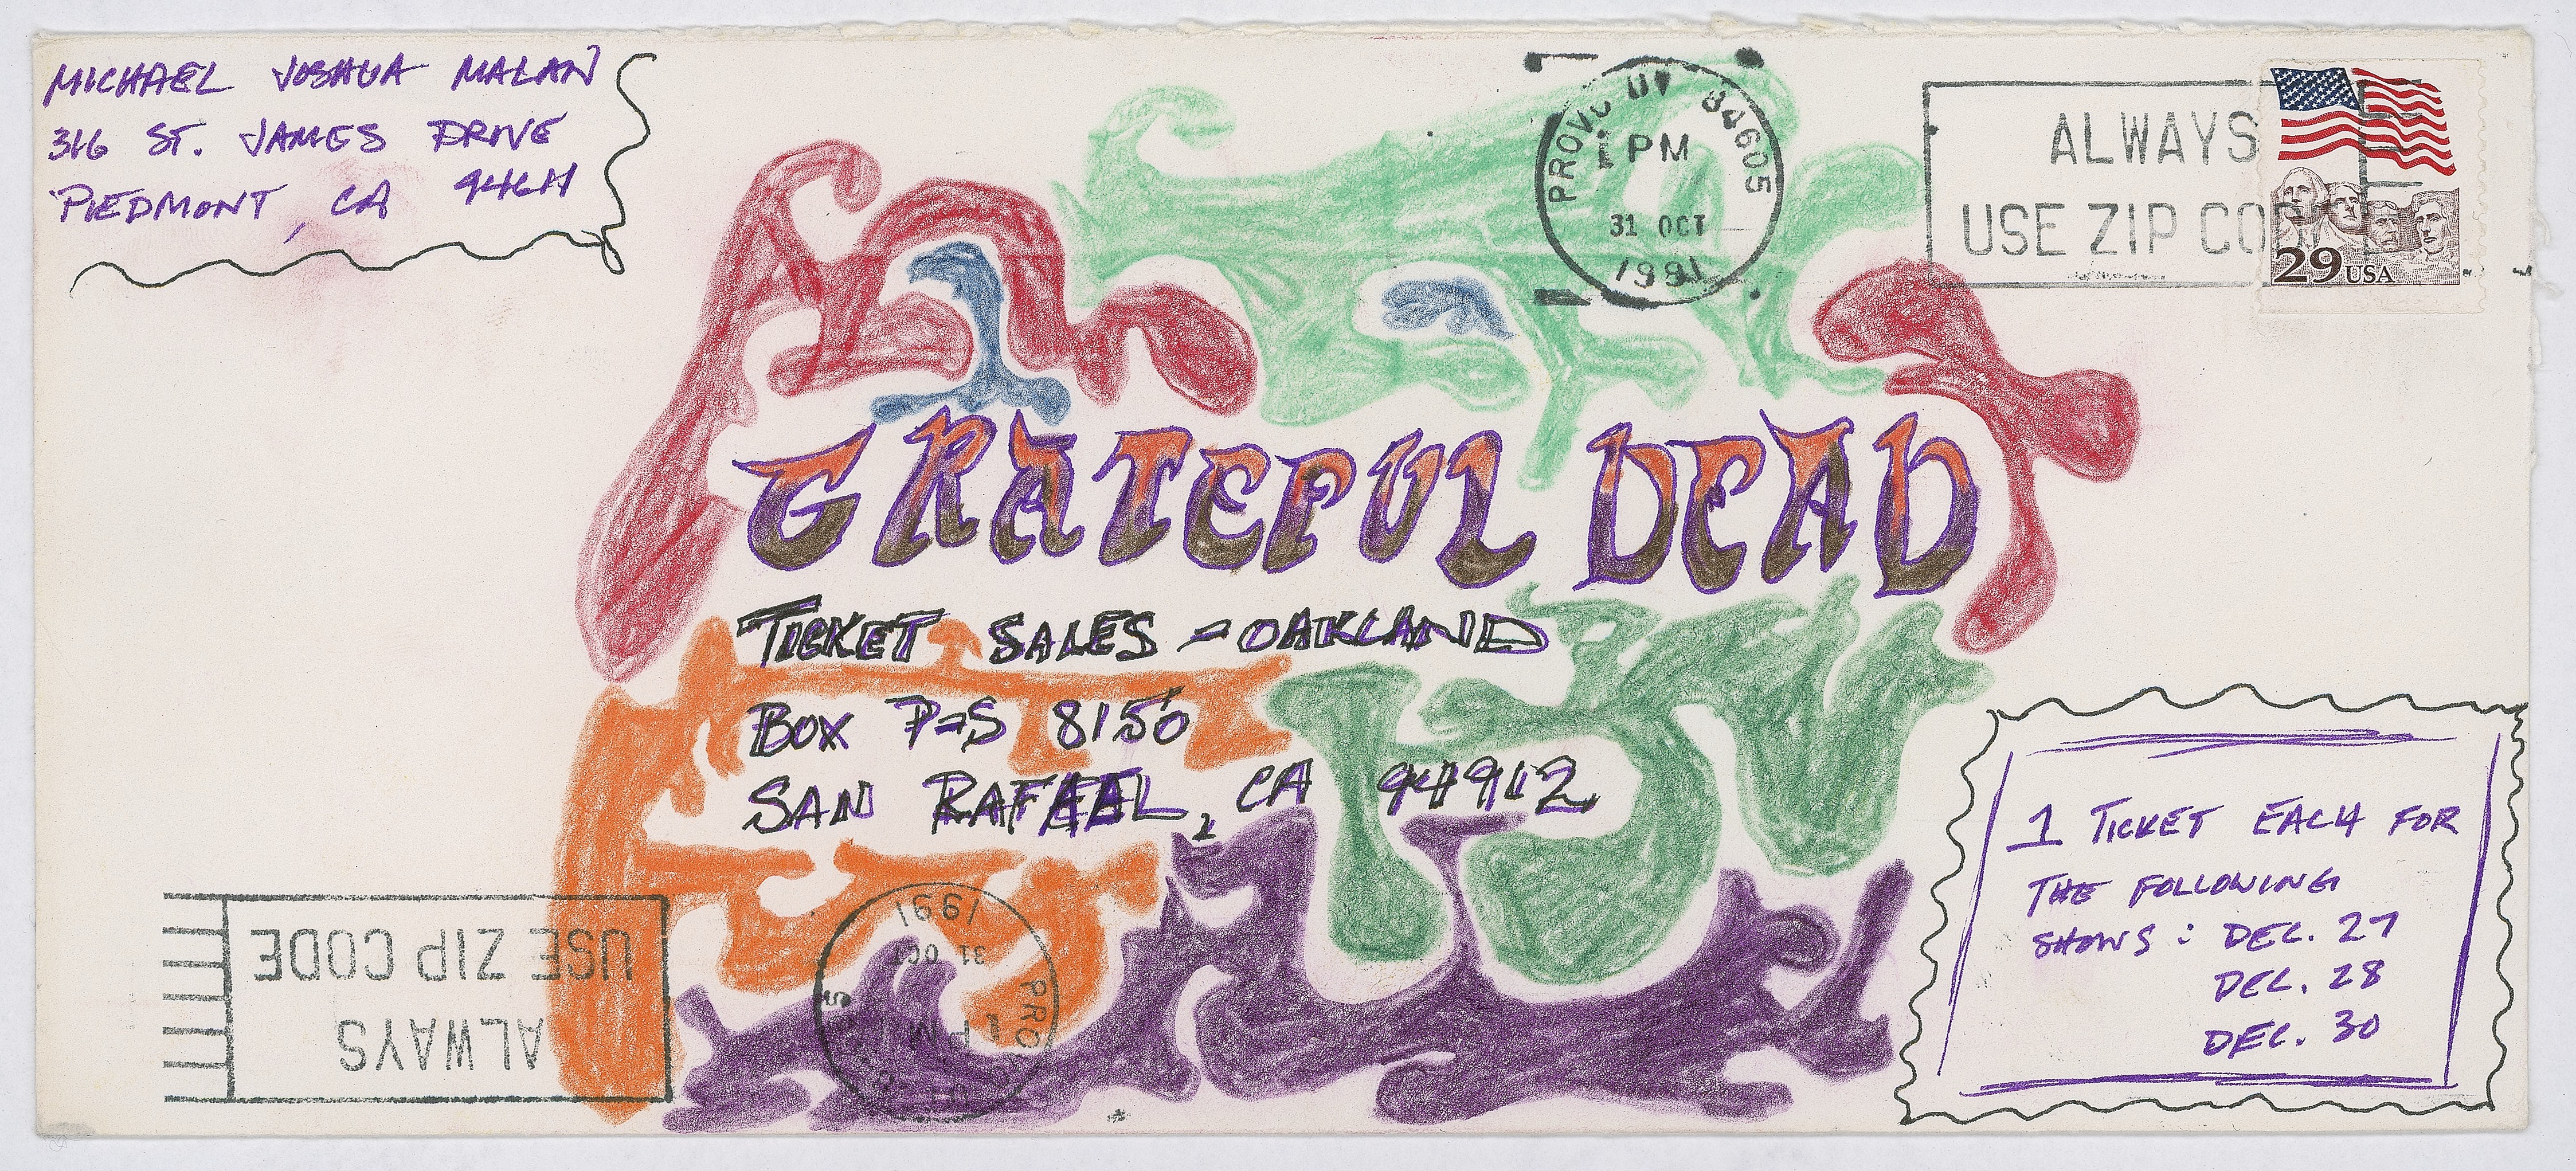 MICHAEL JOSHUA MALAN
316 ST. JAMES DRIVE
PIEDMONT, CA 94611
PROVO UT 84605
PM
31 OCT
1991
ALWAYS
USE ZIP CODE
29 USA
GRATEFUL DEAD
TICKET SALES - OAKLAND
BOX P-S 8150
SAN RAFAEL, CA 94912
1 TICKET EACH FOR
THE FOLLOWING
SHOWS: DEC. 27
DEC. 28
DEC. 30
ALWAYS
USE ZIP CODE
PM
31 OCT
1991